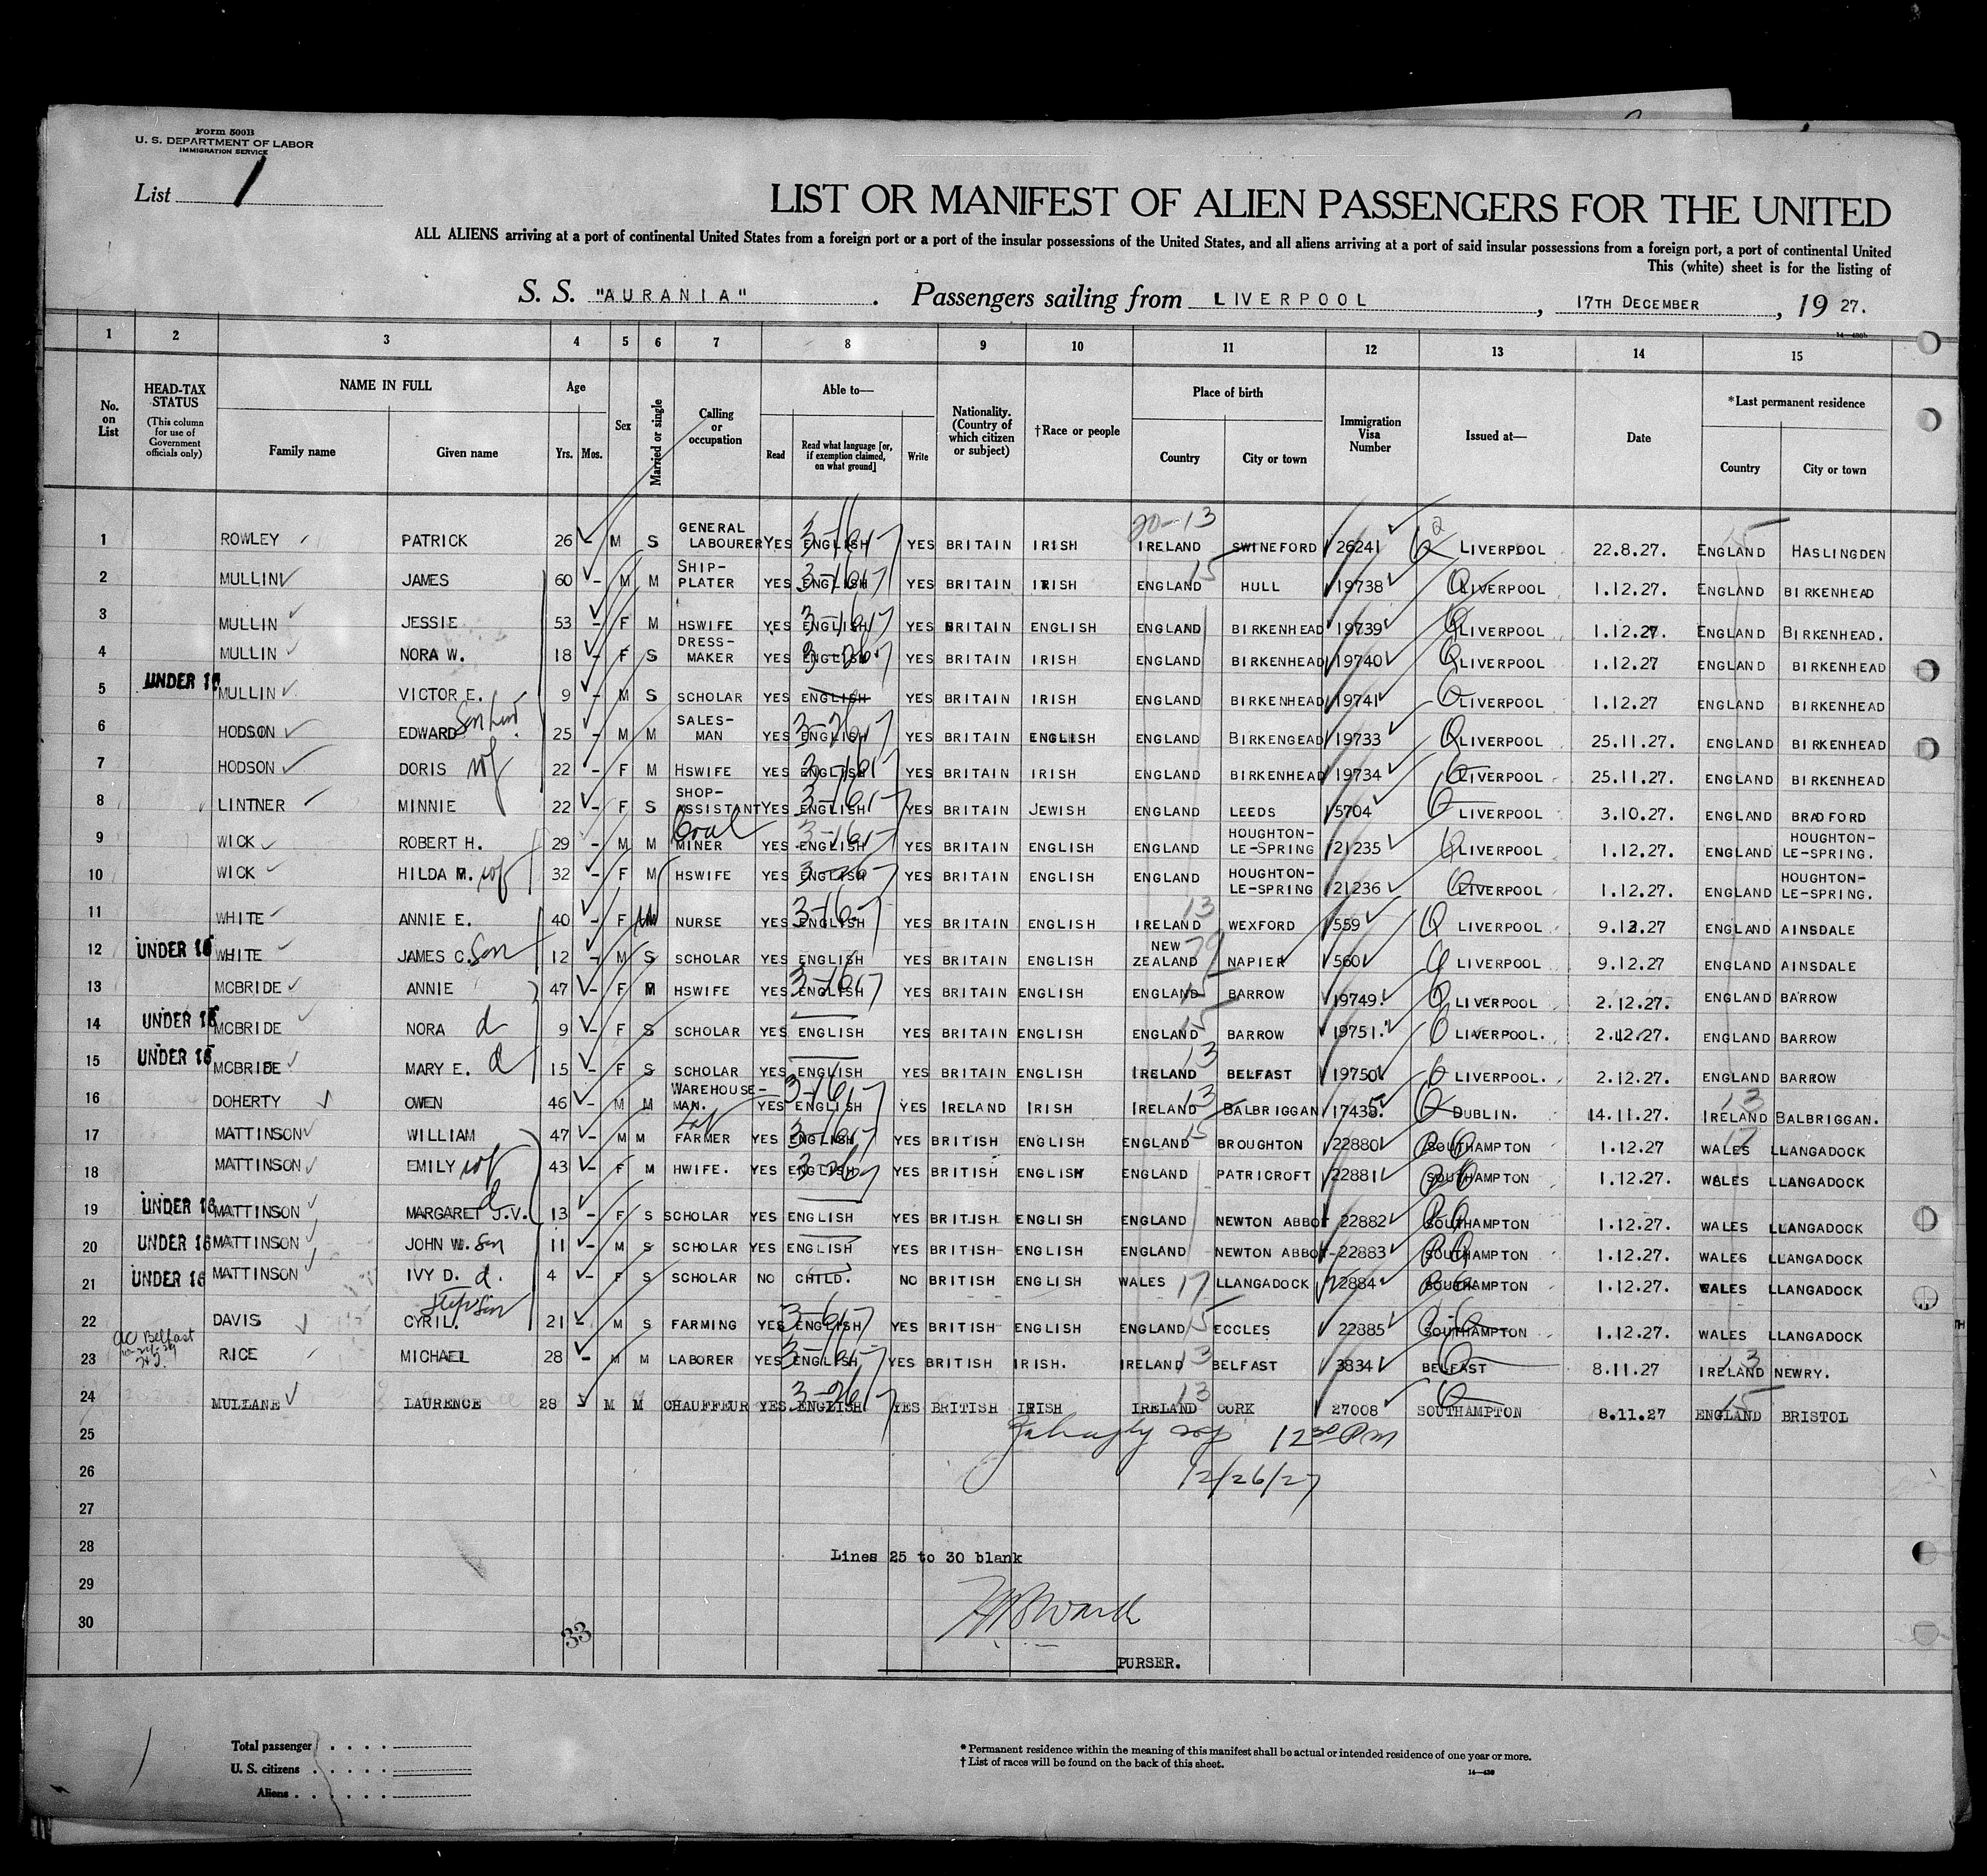 Form 500B
U. S. DEPARTMENT OF LABOR
IMMIGRATION SERVICE
List 1
LIST OR MANIFEST OF ALIEN PASSENGERS FOR THE UNITED
ALL ALIENS arriving at a port of continental United States from a foreign port or a port of the insular possessions of the United States, and all aliens arriving at a port of said insular possessions from a foreign port, a port of continental United
This (white) sheet is for the listing of
S. S. "AURANIA" . Passengers sailing from LIVERPOOL , 17TH DECEMBER , 19 27.
1 2 3 4 5 6 7 8 9 10 11 12 13 14 15
No. on List
HEAD-TAX STATUS
(This column for use of Government officials only)
NAME IN FULL
Family name Given name
Age
Yrs. Mos.
Sex
Married or single
Calling or occupation
Able to—
Read
Read what language [or, if exemption claimed, on what ground]
Write
Nationality. (Country of which citizen or subject)
†Race or people
Place of birth
Country City or town
Immigration Visa Number
Issued at—
Date
*Last permanent residence
Country City or town
20-13
1 ROWLEY PATRICK 26 - M S GENERAL LABOURER YES ENGLISH YES BRITAIN IRISH IRELAND SWINEFORD 26241 LIVERPOOL 22.8.27. ENGLAND HASLINGDEN
2 MULLIN JAMES 60 - M M SHIP-PLATER YES ENGLISH YES BRITAIN IRISH ENGLAND HULL 19738 LIVERPOOL 1.12.27. ENGLAND BIRKENHEAD
3 MULLIN JESSIE 53 - F M HSWIFE YES ENGLISH YES BRITAIN ENGLISH ENGLAND BIRKENHEAD 19739 LIVERPOOL 1.12.27. ENGLAND BIRKENHEAD.
4 MULLIN NORA W. 18 - F S DRESS-MAKER YES ENGLISH YES BRITAIN IRISH ENGLAND BIRKENHEAD 19740 LIVERPOOL 1.12.27 ENGLAND BIRKENHEAD
5 UNDER 16 MULLIN VICTOR E. 9 - M S SCHOLAR YES ENGLISH YES BRITAIN IRISH ENGLAND BIRKENHEAD 19741 LIVERPOOL 1.12.27 ENGLAND BIRKENHEAD
6 HODSON EDWARD 25 - M M SALES-MAN YES ENGLISH YES BRITAIN ENGLISH ENGLAND BIRKENGEAD 19733 LIVERPOOL 25.11.27. ENGLAND BIRKENHEAD
7 HODSON DORIS wf 22 - F M HSWIFE YES ENGLISH YES BRITAIN IRISH ENGLAND BIRKENHEAD 19734 LIVERPOOL 25.11.27. ENGLAND BIRKENHEAD
8 LINTNER MINNIE 22 - F S SHOP-ASSISTANT YES ENGLISH YES BRITAIN JEWISH ENGLAND LEEDS 5704 LIVERPOOL 3.10.27. ENGLAND BRADFORD
9 WICK ROBERT H. 29 - M M Coal MINER YES ENGLISH YES BRITAIN ENGLISH ENGLAND HOUGHTON-LE-SPRING 21235 LIVERPOOL 1.12.27. ENGLAND HOUGHTON-LE-SPRING.
10 WICK HILDA M. wf 32 - F M HSWIFE YES ENGLISH YES BRITAIN ENGLISH ENGLAND HOUGHTON-LE-SPRING 21236 LIVERPOOL 1.12.27. ENGLAND HOUGHTON-LE-SPRING.
11 WHITE ANNIE E. 40 - F NURSE YES ENGLISH YES BRITAIN ENGLISH IRELAND WEXFORD 559 LIVERPOOL 9.12.27 ENGLAND AINSDALE
12 UNDER 16 WHITE JAMES C. Son 12 - M S SCHOLAR YES ENGLISH YES BRITAIN ENGLISH NEW ZEALAND NAPIER 560 LIVERPOOL 9.12.27 ENGLAND AINSDALE
13 MCBRIDE ANNIE 47 - F M HSWIFE YES ENGLISH YES BRITAIN ENGLISH ENGLAND BARROW 19749. LIVERPOOL 2.12.27. ENGLAND BARROW
14 UNDER 16 MCBRIDE NORA d 9 - F S SCHOLAR YES ENGLISH YES BRITAIN ENGLISH ENGLAND BARROW 19751. LIVERPOOL. 2.12.27. ENGLAND BARROW
15 UNDER 16 MCBRIDE MARY E. d 15 - F S SCHOLAR YES ENGLISH YES BRITAIN ENGLISH IRELAND BELFAST 19750 LIVERPOOL. 2.12.27. ENGLAND BARROW
16 DOHERTY OWEN 46 - M M WAREHOUSE-MAN. YES ENGLISH YES IRELAND IRISH IRELAND BALBRIGGAN 17435. DUBLIN. 14.11.27. IRELAND BALBRIGGAN.
17 MATTINSON WILLIAM 47 - M M FARMER YES ENGLISH YES BRITISH ENGLISH ENGLAND BROUGHTON 22880 SOUTHAMPTON 1.12.27 WALES LLANGADOCK
18 MATTINSON EMILY wf 43 - F M HWIFE. YES ENGLISH YES BRITISH ENGLISH ENGLAND PATRICROFT 22881 SOUTHAMPTON 1.12.27. WALES LLANGADOCK
19 UNDER 16 MATTINSON MARGARET J.V. d 13 - F S SCHOLAR YES ENGLISH YES BRITISH ENGLISH ENGLAND NEWTON ABBOT 22882 SOUTHAMPTON 1.12.27. WALES LLANGADOCK
20 UNDER 16 MATTINSON JOHN W. Son 11 - M S SCHOLAR YES ENGLISH YES BRITISH ENGLISH ENGLAND NEWTON ABBOT 22883 SOUTHAMPTON 1.12.27. WALES LLANGADOCK
21 UNDER 16 MATTINSON IVY D. d. 4 - F S SCHOLAR NO CHILD. NO BRITISH ENGLISH WALES LLANGADOCK 22884 SOUTHAMPTON 1.12.27. WALES LLANGADOCK
22 DAVIS CYRIL. Step Son 21 - M S FARMING YES ENGLISH YES BRITISH ENGLISH ENGLAND ECCLES 22885 SOUTHAMPTON 1.12.27. WALES LLANGADOCK
23 Belfast RICE MICHAEL 28 - M M LABORER YES ENGLISH YES BRITISH IRISH. IRELAND BELFAST 3834 BELFAST 8.11.27 IRELAND NEWRY.
24 MULLANE LAURENCE 28 M M CHAUFFEUR YES ENGLISH YES BRITISH IRISH IRELAND CORK 27008 SOUTHAMPTON 8.11.27 ENGLAND BRISTOL
25 12 30 PM
26 12/26/27
27
28 Lines 25 to 30 blank
29
30
33
PURSER.
Total passenger
U. S. citizens
Aliens
* Permanent residence within the meaning of this manifest shall be actual or intended residence of one year or more.
† List of races will be found on the back of this sheet.